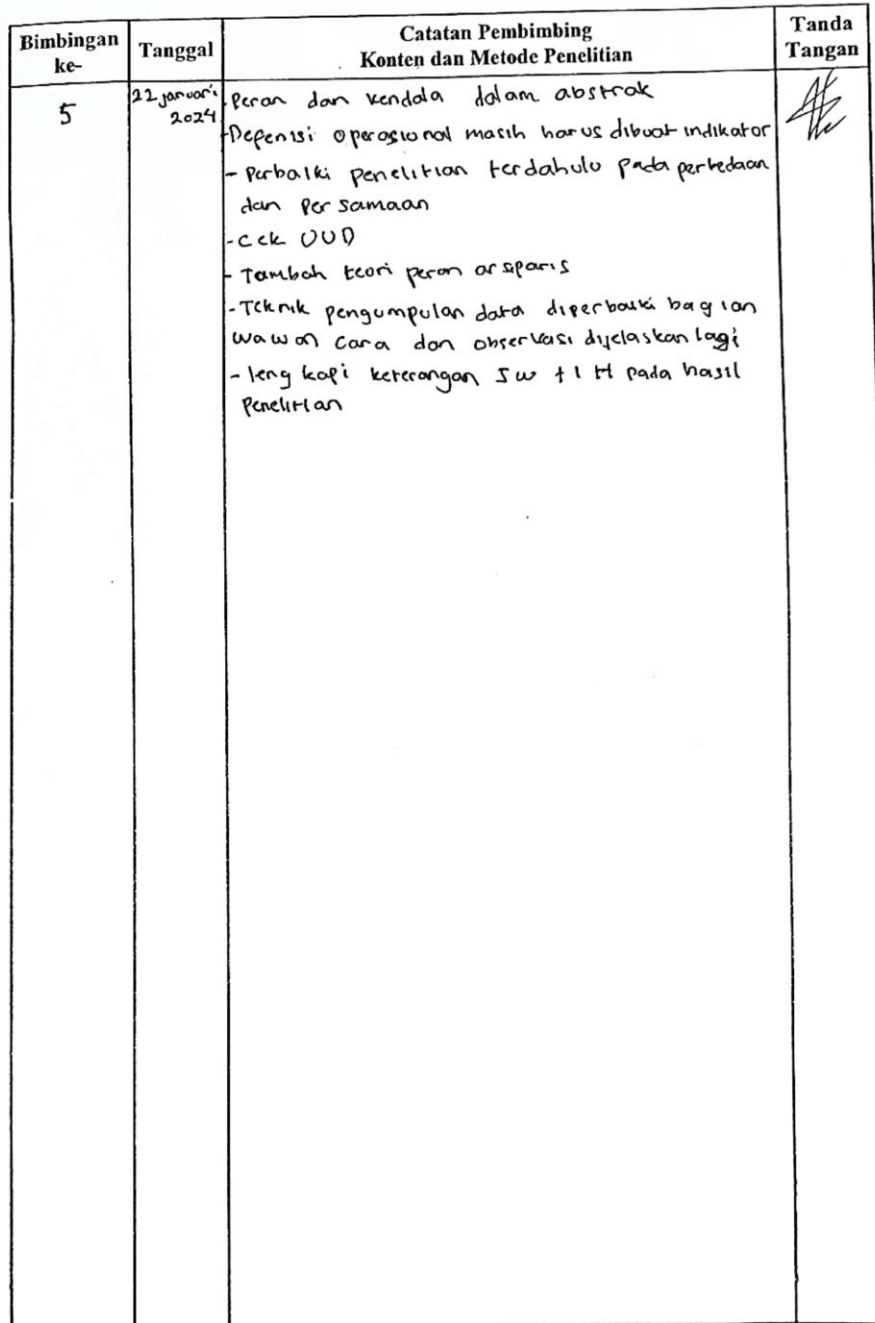 Bimbingan ke-
Tanggal
Catatan Pembimbing
Konten dan Metode Penelitian
Tanda Tangan
5
22 januari 2024
- Peran dan kendala dalam abstrak
- Depenisi operasional masih harus dibuat indikator
- Perbaiki penelitian terdahulu pada perbedaan
dan Persamaan
- Cek UUD
- Tambah teori peran arsiparis
- Teknik pengumpulan data diperbaiki bagian
wawancara dan observasi dijelaskan lagi
- lengkapi keterangan 5w + 1 H pada hasil
Penelitian